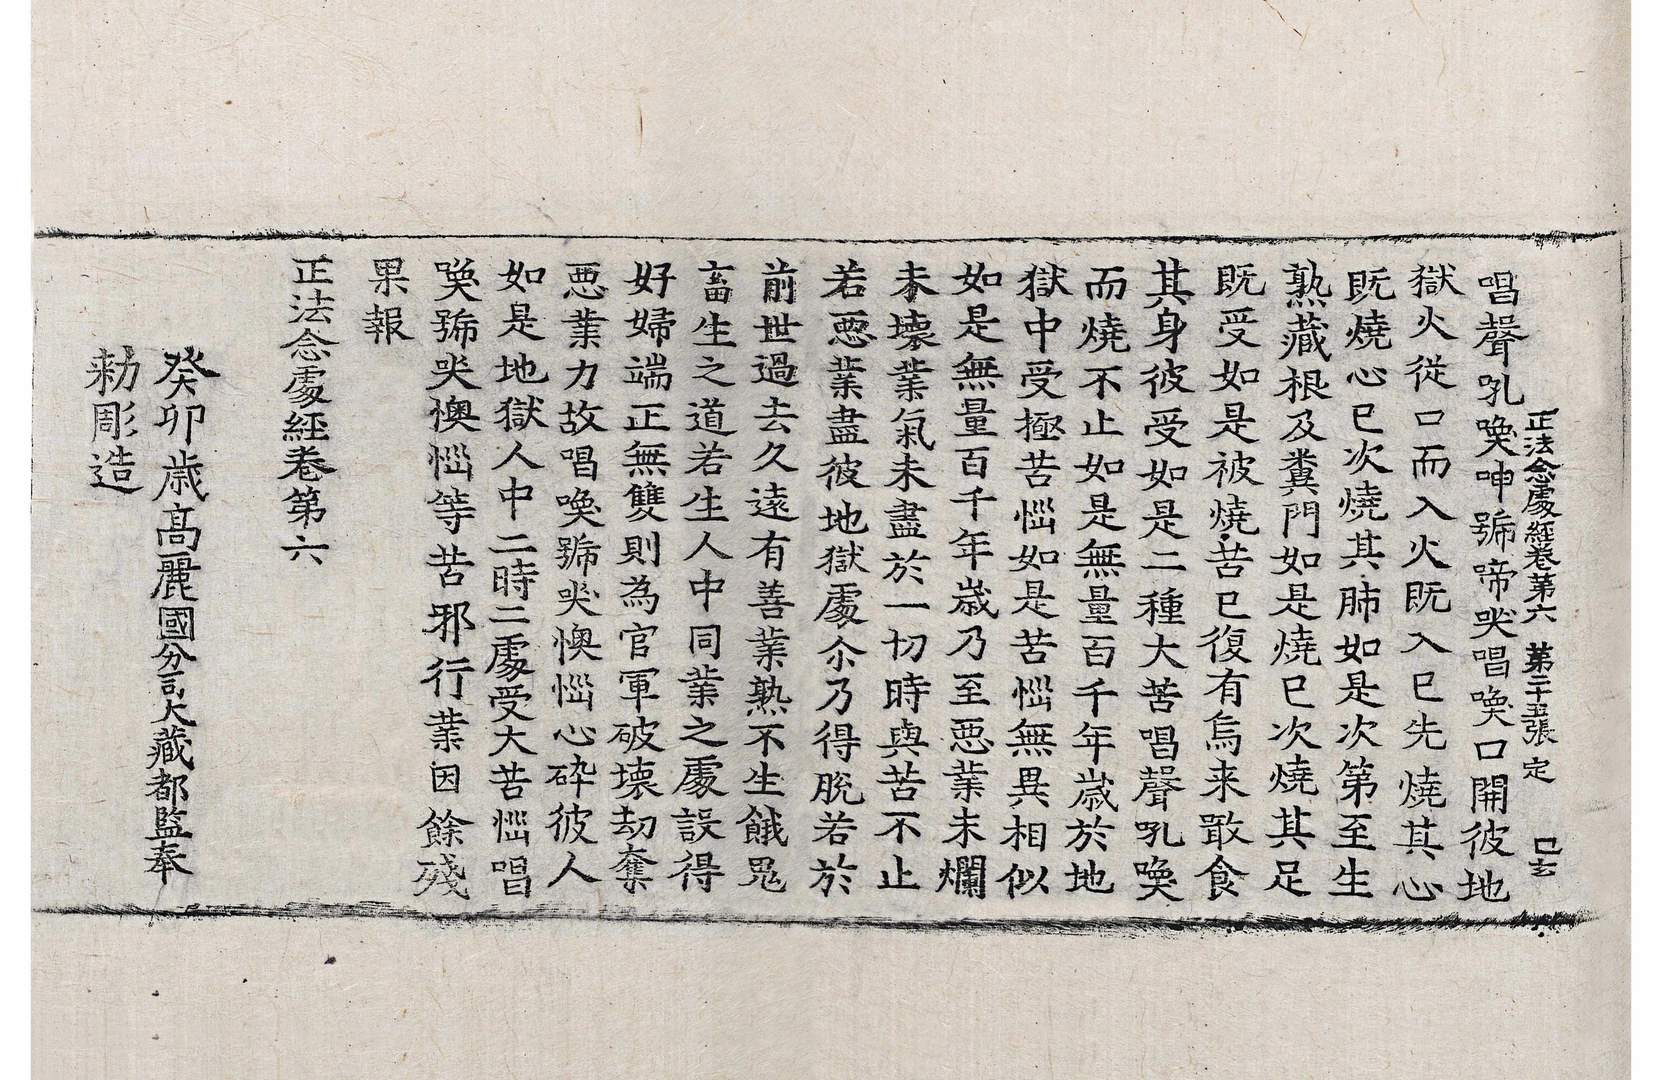 正法念處經卷第六　第二十五張　定　已玄
唱聲吼喚呻號啼哭唱喚口開彼地
獄火從口而入火既入已先燒其心
既燒心已次燒其肺如是次第至生
熟藏根及糞門如是燒已次燒其足
既受如是被燒苦已復有烏来噉食
其身彼受如是二種大苦唱聲吼喚
而燒不止如是無量百千年歲於地
獄中受極苦惱如是苦惱無異相似
如是無量百千年歲乃至惡業未爛
未壞業氣未盡於一切時與苦不止
若惡業盡彼地獄處尒乃得脫若於
前世過去久遠有善業熟不生餓鬼
畜生之道若生人中同業之處設得
好婦端正無雙則為官軍破壞劫奪
惡業力故唱喚號哭懊惱心碎彼人
如是地獄人中二時二處受大苦惱唱
喚號哭懊惱等苦邪行業因餘殘
果報
正法念處經卷第六
癸卯歲高麗國分司大藏都監奉
勑彫造